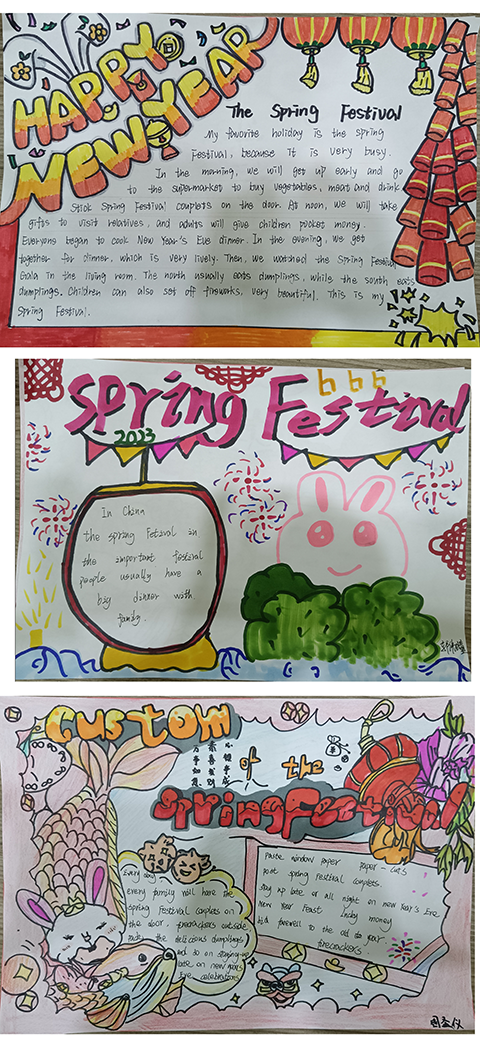 HAPPY
NEW YEAR
The Spring Festival
My favorite holiday is the spring
Festival, because it is very busy.
In the morning, we will get up early and go
to the supermarket to buy vegetables, meat and drink
Stick Spring Festival couplets on the door. At noon, we will take
gifts to visit relatives, and adults will give children pocket money.
Everyone began to cook New Year's Eve dinner. In the evening, we get
together for dinner, which is very lively. Then, we watched the Spring Festival
Gala in the living room. The north usually eats dumplings, while the south eats
dumplings. Children can also set off fireworks, very beautiful. This is my
Spring Festival.
Spring Festival
666
2023
In China
the spring Fetival in
the important festival
people usually have a
big dinner with
family.
Custom
of the
Spring Festival
万事如意
恭喜发财
Every day
every family will have the
spring Festival couplets on
the door, firecrackers outside
the delicious dumplings
to on staying-up
late on new year's
Eve celebration
Paste window paper paper-cuts
Post spring Festival couplets.
stay up late or all night on new Year's Eve
New Year Feast lucky money
bid farewell to the old year
firecrackers.